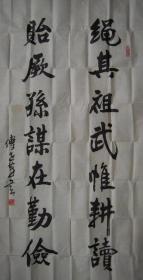 绳其祖武惟耕讀
貽厥孫謀在勤儉